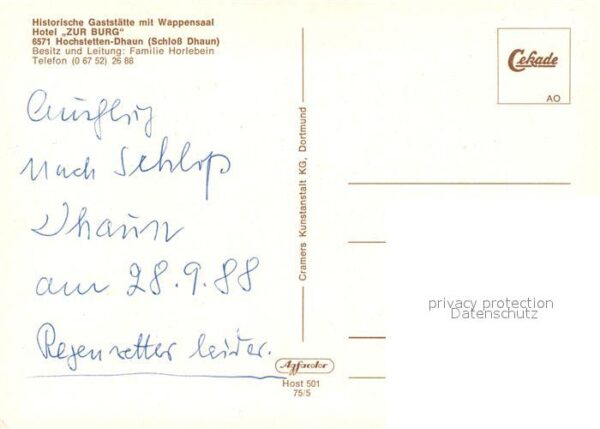 Historische Gaststätte mit Wappensaal
Hotel „ZUR BURG"
6571 Hochstetten-Dhaun (Schloß Dhaun)
Besitz und Leitung: Familie Horlebein
Telefon (0 67 52) 26 88
Ausflug
nach Schloß
Dhaun
am 28.9.88
Regenwetter leider.
Cramers Kunstanstalt KG, Dortmund
Cekade
AO
privacy protection
Datenschutz
Agfacolor
Host 501
75/5